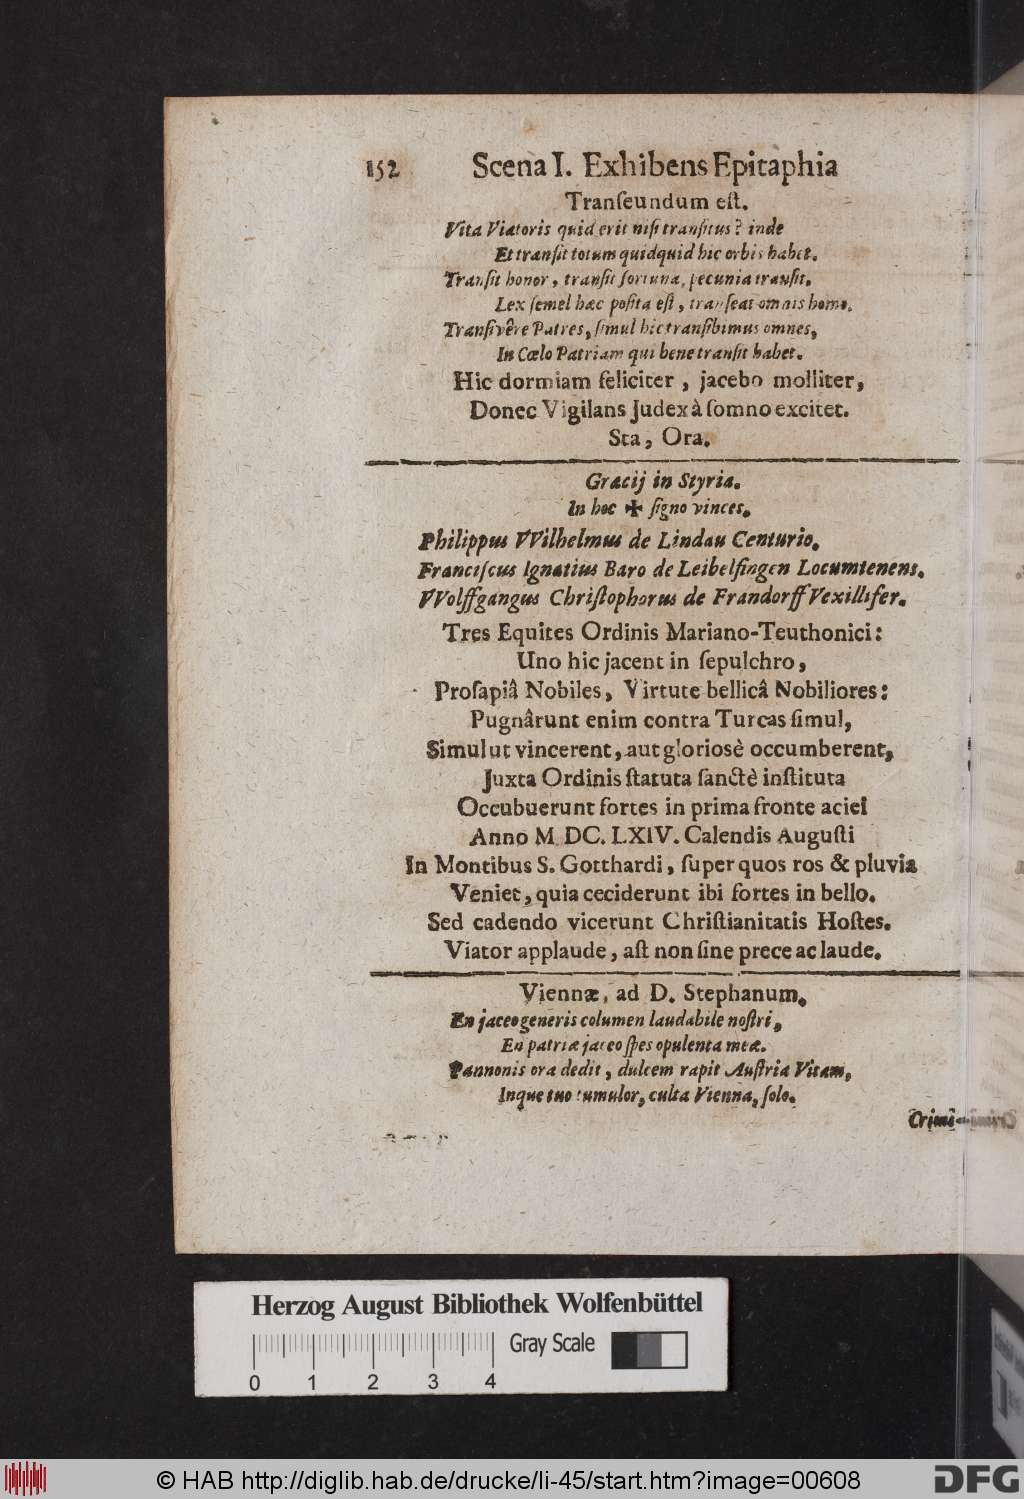 152 Scena I. Exhibens Epitaphia
Tranſeundum eſt.
Vita Viatoris quid erit niſi tranſitus? inde
Et tranſit totum quidquid hic orbis habet.
Tranſit honor, tranſit fortuna, pecunia tranſit.
Lex ſemel hæc poſita eſt, tranſeat omnis homo.
Tranſivêre Patres, ſimul hic tranſibimus omnes,
In Cœlo Patriam qui bene tranſit habet.
Hic dormiam feliciter, jacebo molliter,
Donec Vigilans Judex à ſomno excitet.
Sta, Ora.
Gracij in Styria.
In hoc ✠ ſigno vinces.
Philippus VVilhelmus de Lindau Centurio.
Franciſcus Ignatius Baro de Leibelfingen Locumtenens.
VVolffgangus Chriſtophorus de Frandorff Vexillifer.
Tres Equites Ordinis Mariano-Teuthonici:
Uno hic jacent in ſepulchro,
Proſapiâ Nobiles, Virtute bellicâ Nobiliores:
Pugnârunt enim contra Turcas ſimul,
Simul ut vincerent, aut glorioſè occumberent,
Juxta Ordinis ſtatuta ſanctè inſtituta
Occubuerunt fortes in prima fronte aciei
Anno M. DC. LXIV. Calendis Auguſti
In Montibus S. Gotthardi, ſuper quos ros & pluvia
Veniet, quia ceciderunt ibi fortes in bello.
Sed cadendo vicerunt Chriſtianitatis Hoſtes.
Viator applaude, aſt non ſine prece ac laude.
Viennæ, ad D. Stephanum.
En jaceo generis columen laudabile noſtri,
En patriæ jaceo ſpes opulenta meæ.
Pannonis ora dedit, dulcem rapit Auſtria Vitam,
Inque tuo tumulor, culta Vienna, ſolo.
Crimi-
Herzog August Bibliothek Wolfenbüttel
Gray Scale
0 1 2 3 4
© HAB http://diglib.hab.de/drucke/li-45/start.htm?image=00608
DFG